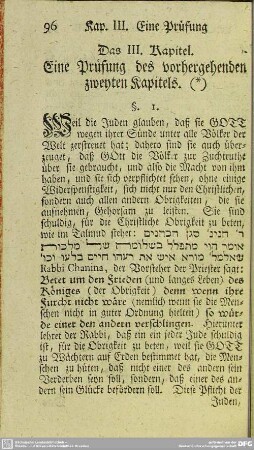 96 Kap. III. Eine Prüfung
Das III. Kapitel.
Eine Prüfung des vorhergehenden
zweyten Kapitels. (*)
§. 1.
Weil die Juden glauben, daß sie GOTT
wegen ihrer Sünde unter alle Völker der
Welt zerstreuet hat; dahero sind sie auch über-
zeuget, daß GOtt die Völker zur Zuchtruthe
über sie gebraucht, und also die Macht von ihm
haben, und sie sich verpflichtet sehen, ohne einige
Widerspenstigkeit, sich nicht nur den Christlichen,
sondern auch allen andern Obrigkeiten, die sie
aufnehmen, Gehorsam zu leisten. Sie sind
schuldig, für die Christliche Obrigkeit zu beten,
wie im Talmud stehet: ר חנינא סגן הכהנים
אומר הוי מתפלל בשלומה של מלכות
שאלמלי מורא איש את רעהו חיים בלעו וכו
Rabbi Chanina, der Vorsteher der Priester saat:
Betet um den Frieden (und langes Leben) des
Königes (der Obrigkeit) denn wenn ihre
Furcht nicht wäre (nemlich wenn sie die Men-
schen nicht in guter Ordnung hielten) so wür-
de einer den andern verschlingen. Hierunter
lehret der Rabbi, daß ein ein jeder Jude schuldig
ist, für die Obrigkeit zu beten, weil sie GOTT
zu Wächtern auf Erden bestimmet hat, die Men-
schen zu hüten, daß nicht einer des andern sein
Verderben seyn soll, sondern, daß einer des an-
dern sein Glücke befördern soll. Diese Pflicht der
Juden,